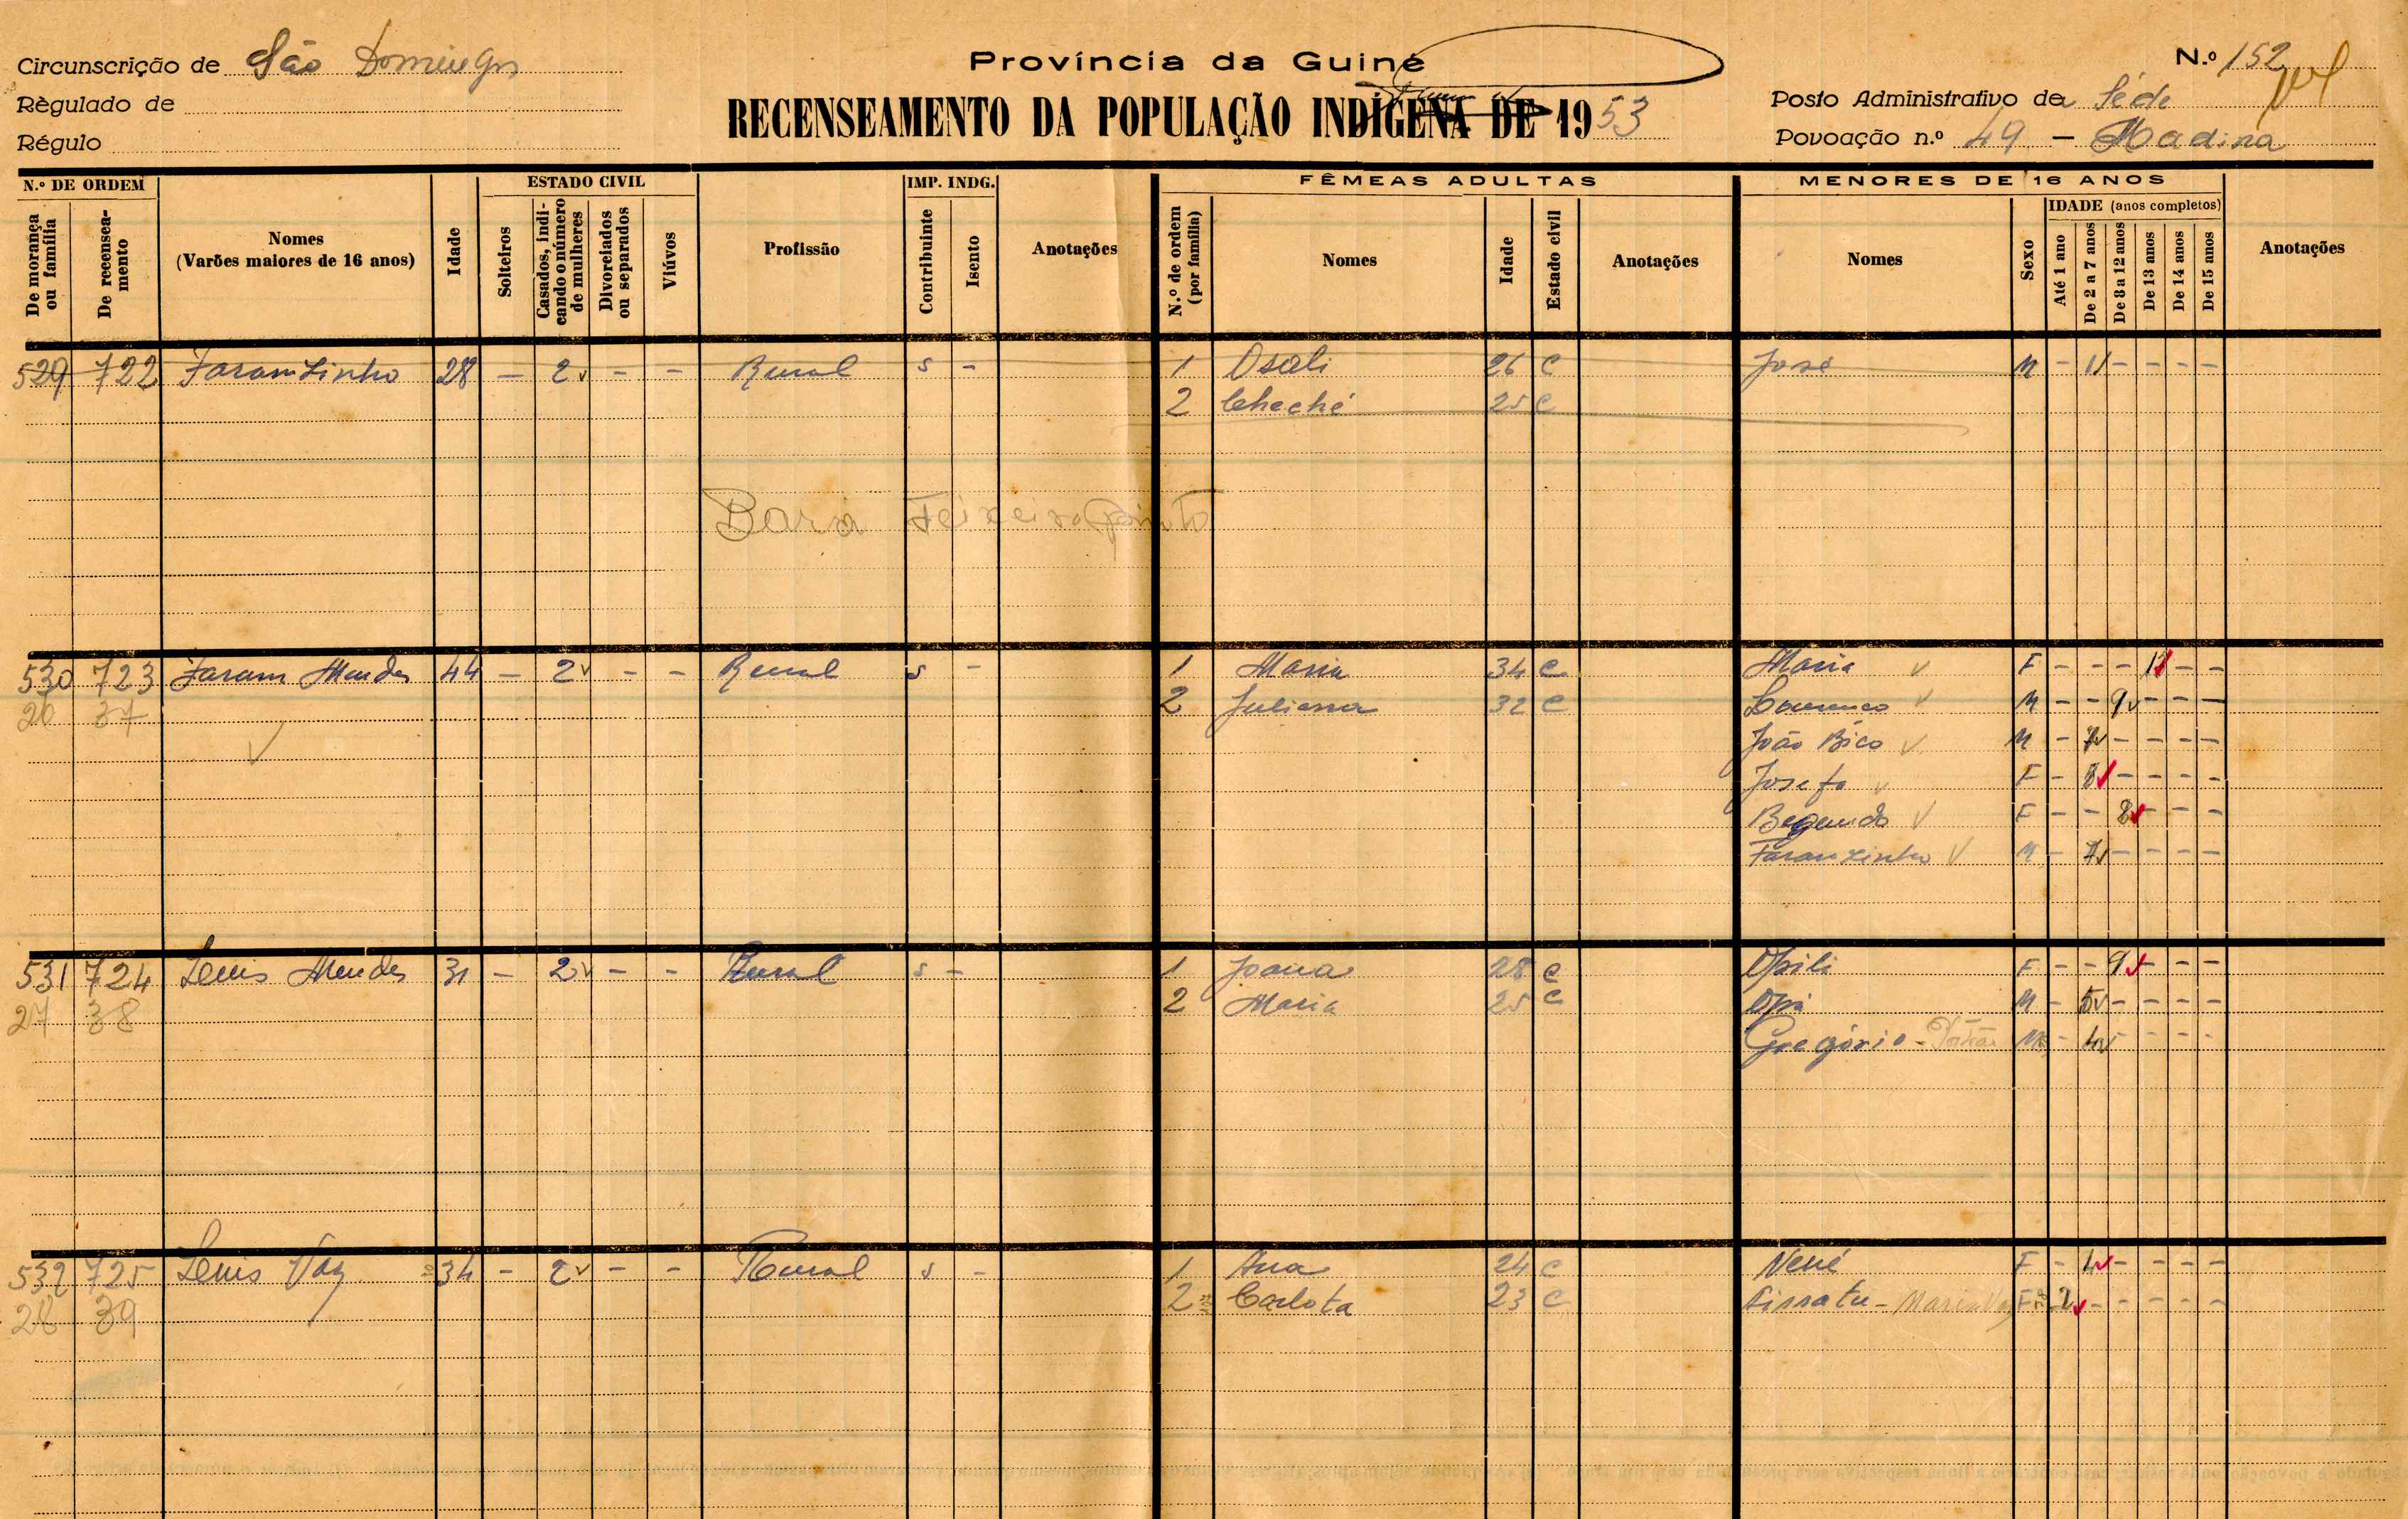 Circunscrição de São Domingos
Règulado de
Régulo
Província da Guiné
RECENSEAMENTO DA POPULAÇÃO INDÍGENA DE 1953
N.º 152
Posto Administrativo de a Séde
Povoação n.º 49 – Madina
N.º DE ORDEM
De morança ou família
De recenseamento
Nomes
(Varões maiores de 16 anos)
Idade
ESTADO CIVIL
Solteiros
Casados, indicando o número de mulheres
Divorciados ou separados
Viúvos
Profissão
IMP. INDG.
Contribuinte
Isento
Anotações
FÊMEAS ADULTAS
N.º de ordem (por família)
Nomes
Idade
Estado civil
Anotações
MENORES DE 16 ANOS
Nomes
Sexo
IDADE (anos completos)
Até 1 ano
De 2 a 7 anos
De 8 a 12 anos
De 13 anos
De 14 anos
De 15 anos
Anotações
529 722 Faramzinho 28 – 2 – – Rural s – 1 Osali 26 C José M –  – – – –
2 Cheché 25 C
Bará Teixeira Pinto
530 723 Faram Mendes 44 – 2 – – Rural s – 1 Maria 34 C Maria F – – – 13 – –
26 37 2 Juliana 32 C Lourenço M – – 9 – – –
João Bico M – – – – –
Josefa F – – – – –
Segunda F – – 8 – – –
Faramzinho M – 7 – – – –
531 724 Lenis Mendes 31 – 2 – – Rural s – 1 Joana 28 C Opili F – – 9 – – –
27 38 2 Maria 25 C Opá M – 5 – – – –
Gregório – M – 4 – – – –
532 725 Lenis Vaz 34 – 2 – – Rural s – 1 Ana 24 C Nené F – 4 – – – –
28 39 2 Carlota 23 C Sirratu – Maria Vaz F 2 – – – – –